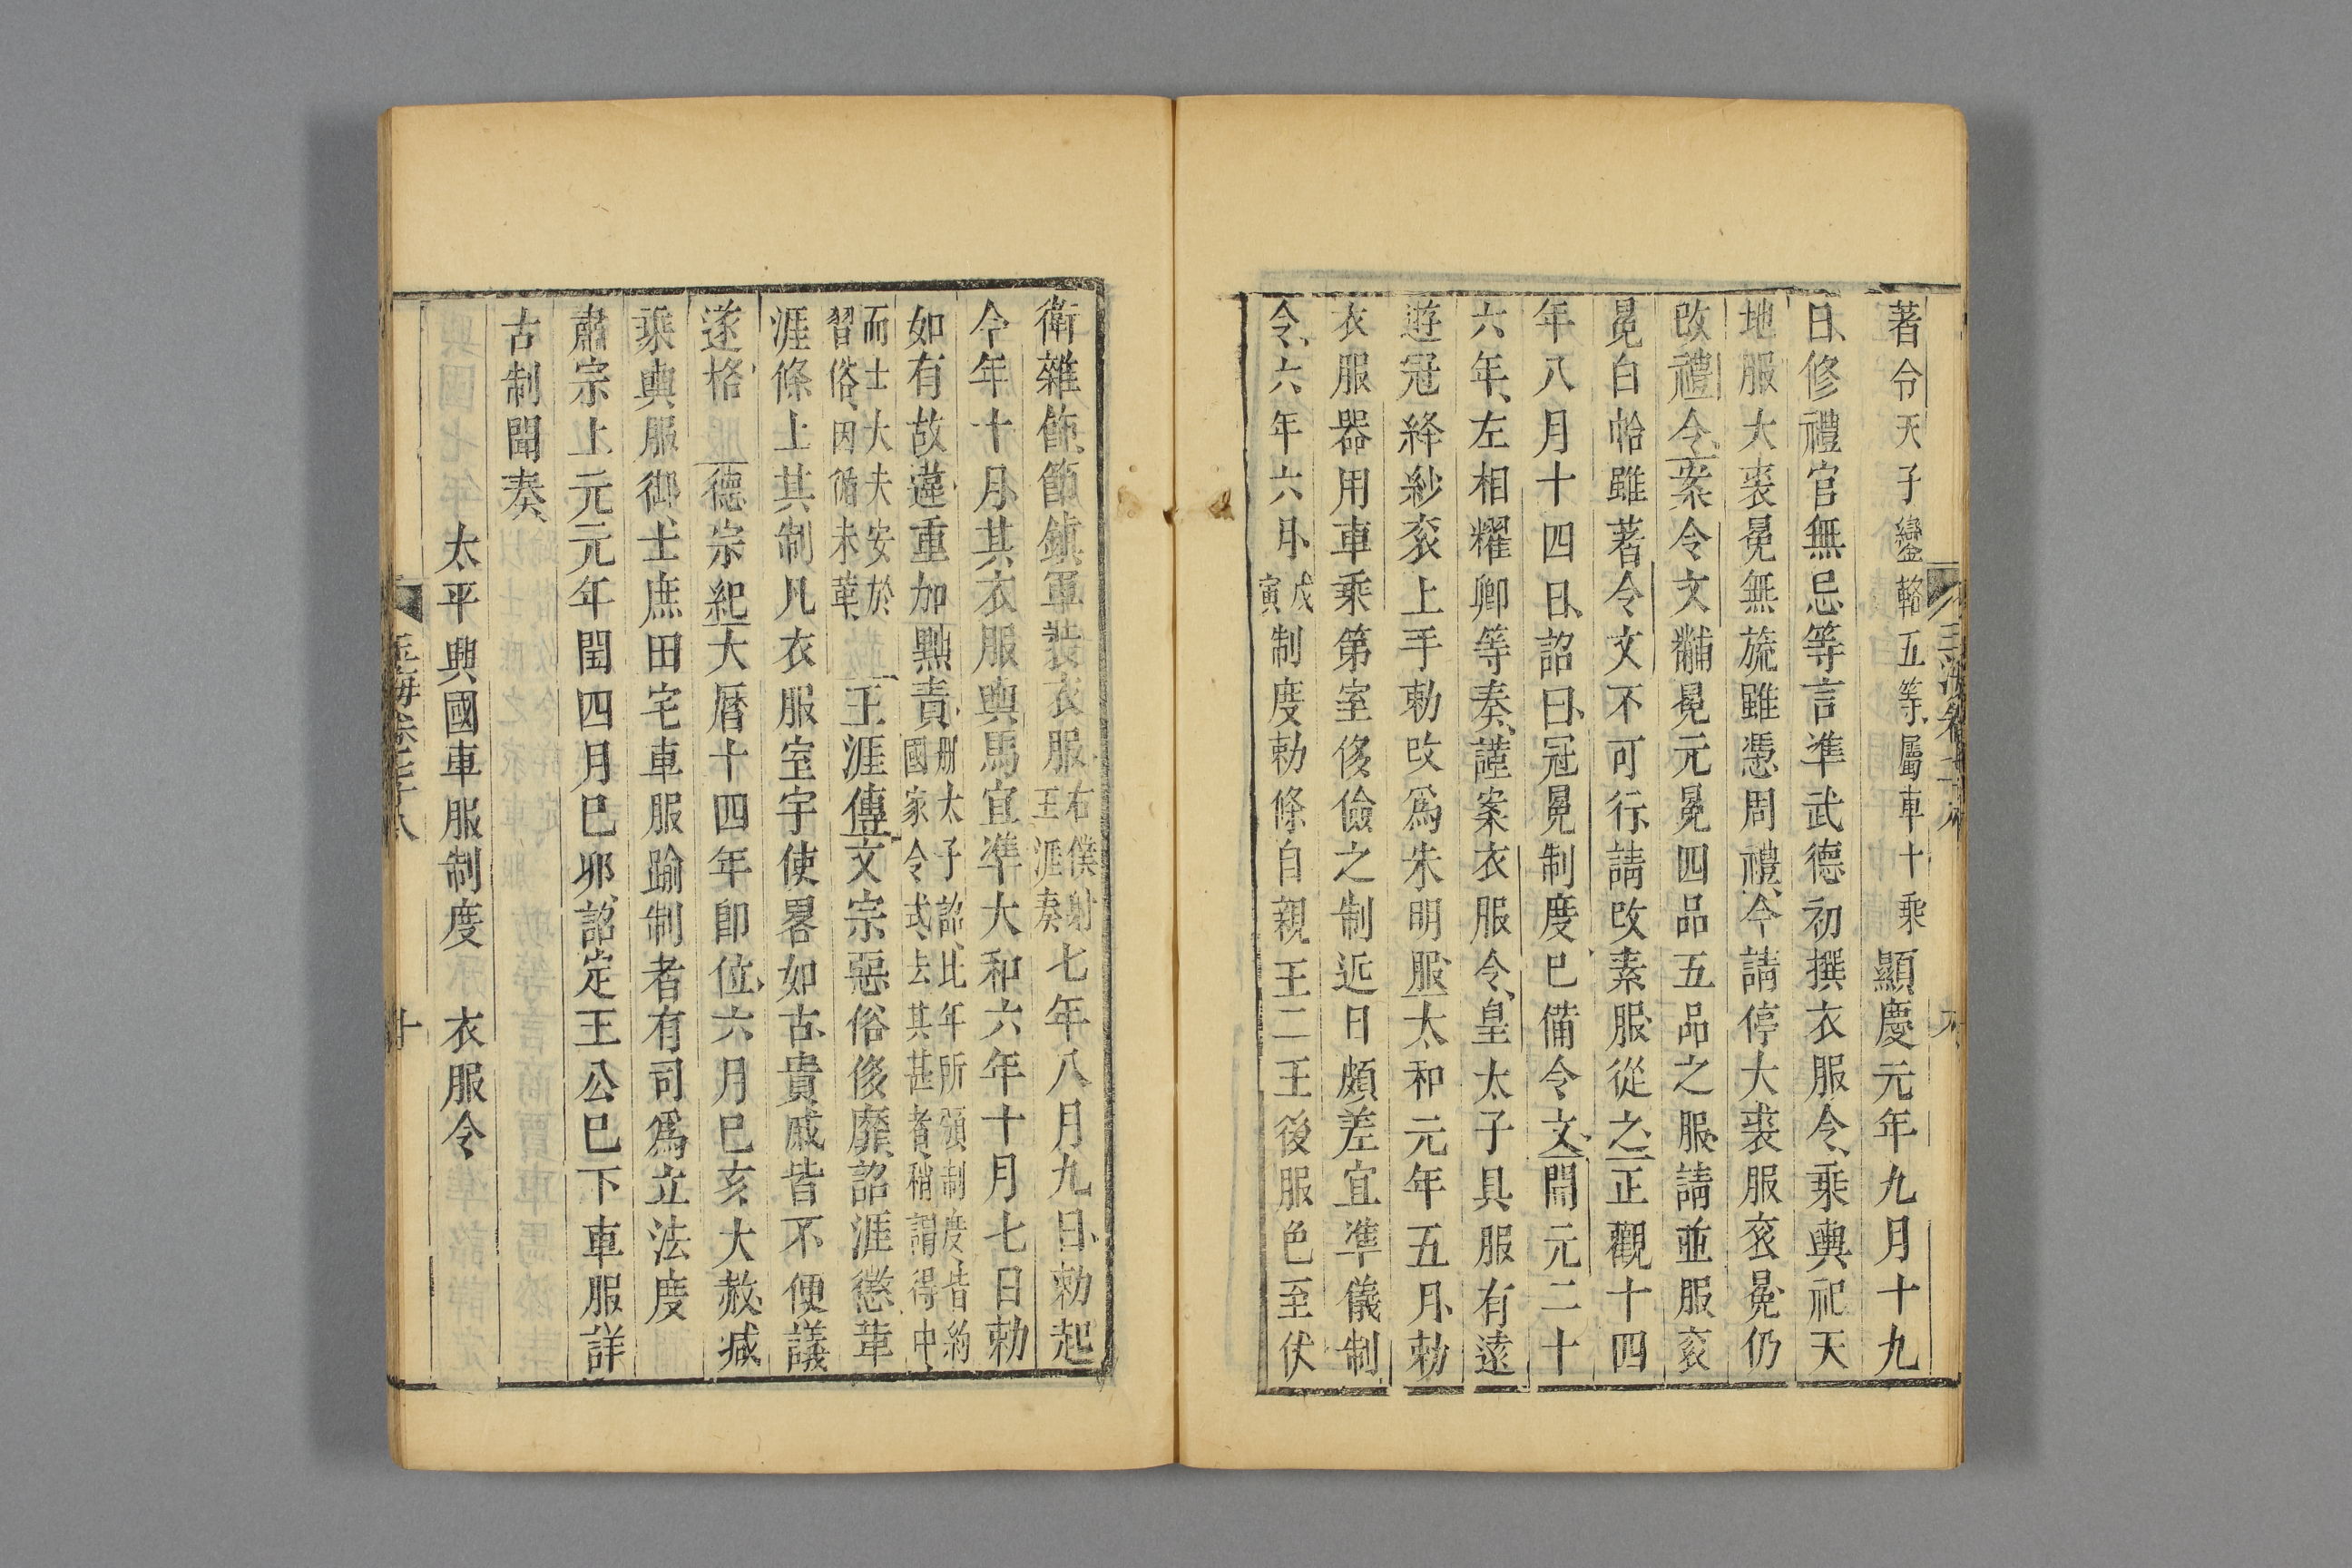 著令天子鑾輅五等屬車十乘顯慶元年九月十九
日修禮官無忌等言準武德初撰衣服令乘輿祀天
地服大裘冕無旒雖憑周禮令請停大裘服衮冕仍
改禮令案令文黼冕元冕四品五品之服請並服衮
冕白帢雖著令文不可行請改素服從之正觀十四
年八月十四日詔曰冠冕制度已備令文開元二十
六年左相耀卿等奏謹案衣服令皇太子具服有遠
遊冠絳紗衮上手勅改爲朱明服太和元年五月勅
衣服器用車乘第室侈儉之制近日頗差宜準儀制
令六年六月戊寅制度勅條自親王二王後服色至伏
衛雜飾節鎮軍裝衣服右僕射王涯奏七年八月九日勅起
今年十月其衣服輿馬宜準大和六年十月七日勅
如有故違重加黜責冊太子詔比年所頒制度皆約國家令式去其甚者稍謂得中
而士大夫安於習俗因循未革王涯傳文宗惡俗侈靡詔涯懲革
涯條上其制凡衣服室宇使畧如古貴戚皆不便議
遂格德宗紀大曆十四年卽位六月已亥大赦减
乘輿服御士庶田宅車服踰制者有司爲立法度
肅宗上元元年閏四月巳夘詔定王公巳下車服詳
古制聞奏
太平興國車服制度 衣服令
玉海卷七十八 十